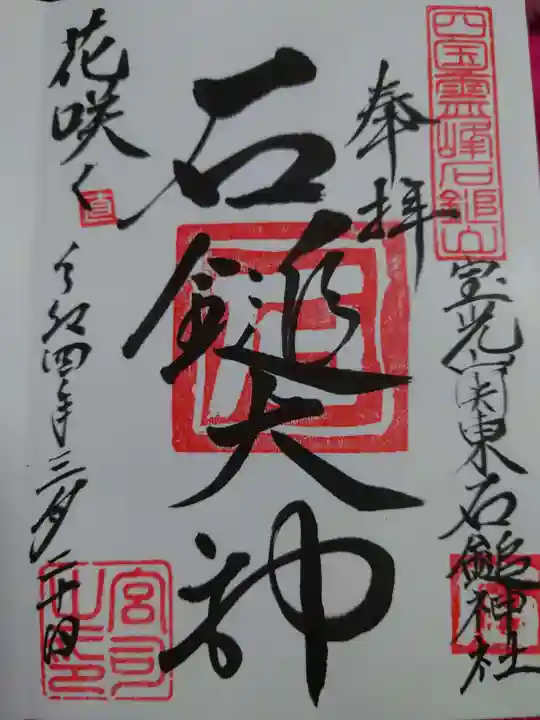 四国霊峰石鎚山
奉拝
宝光宮関東石鎚神社
石鎚大神
花咲く
直
令和四年三月二十日
宮司之印